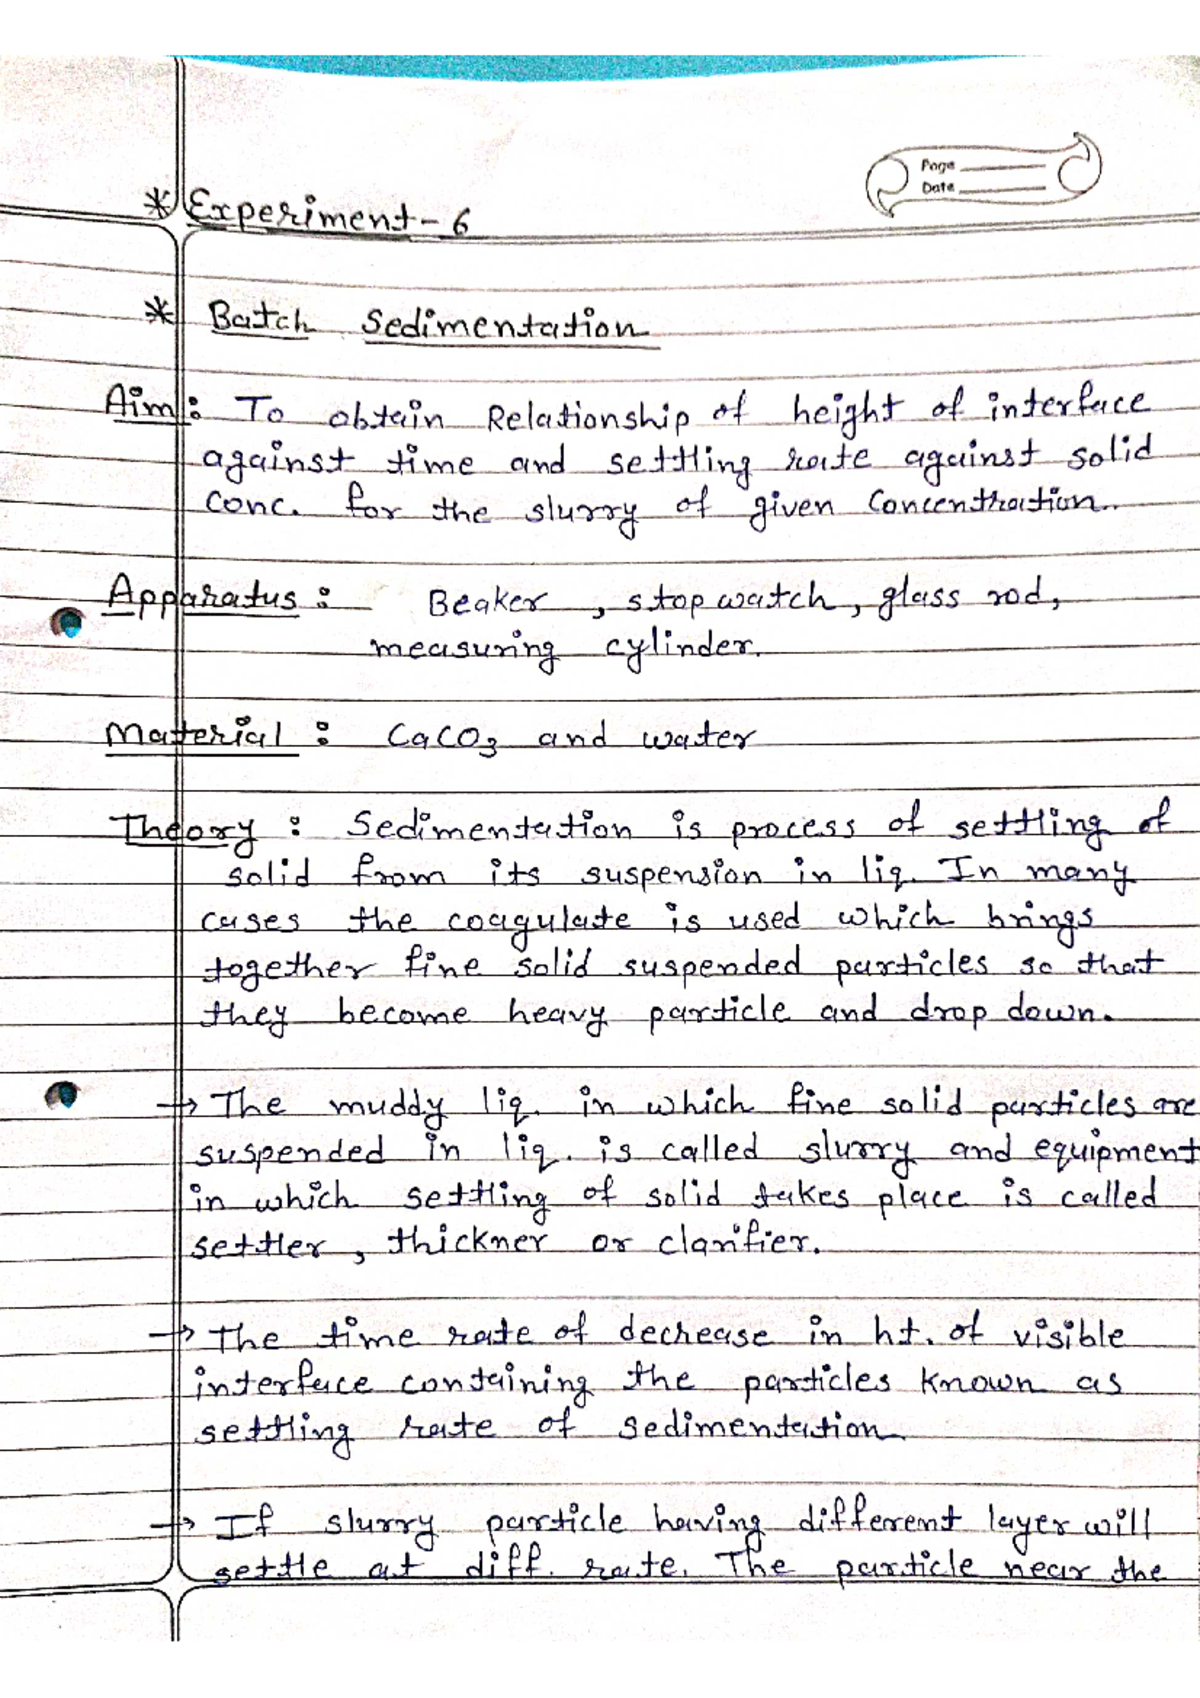 Page
Date
* Experiment - 6
* Batch Sedimentation
Aim : To obtain Relationship of height of interface
against time and settling rate against solid
conc. for the slurry of given Concentration.
Apparatus : Beaker , stop watch, glass rod,
measuring cylinder.
Material : CaCO3 and water
Theory : Sedimentation is process of settling of
solid from its suspension in liq. In many
cases the coagulate is used which brings
together fine solid suspended particles so that
they become heavy particle and drop down.
→ The muddy liq. in which fine solid particles are
suspended in liq. is called slurry and equipment
in which settling of solid takes place is called
settler , thickner or clarifier.
→ The time rate of decrease in ht. of visible
interface containing the particles known as
settling rate of sedimentation.
→ If slurry particle having different layer will
settle at diff. rate. The particle near the